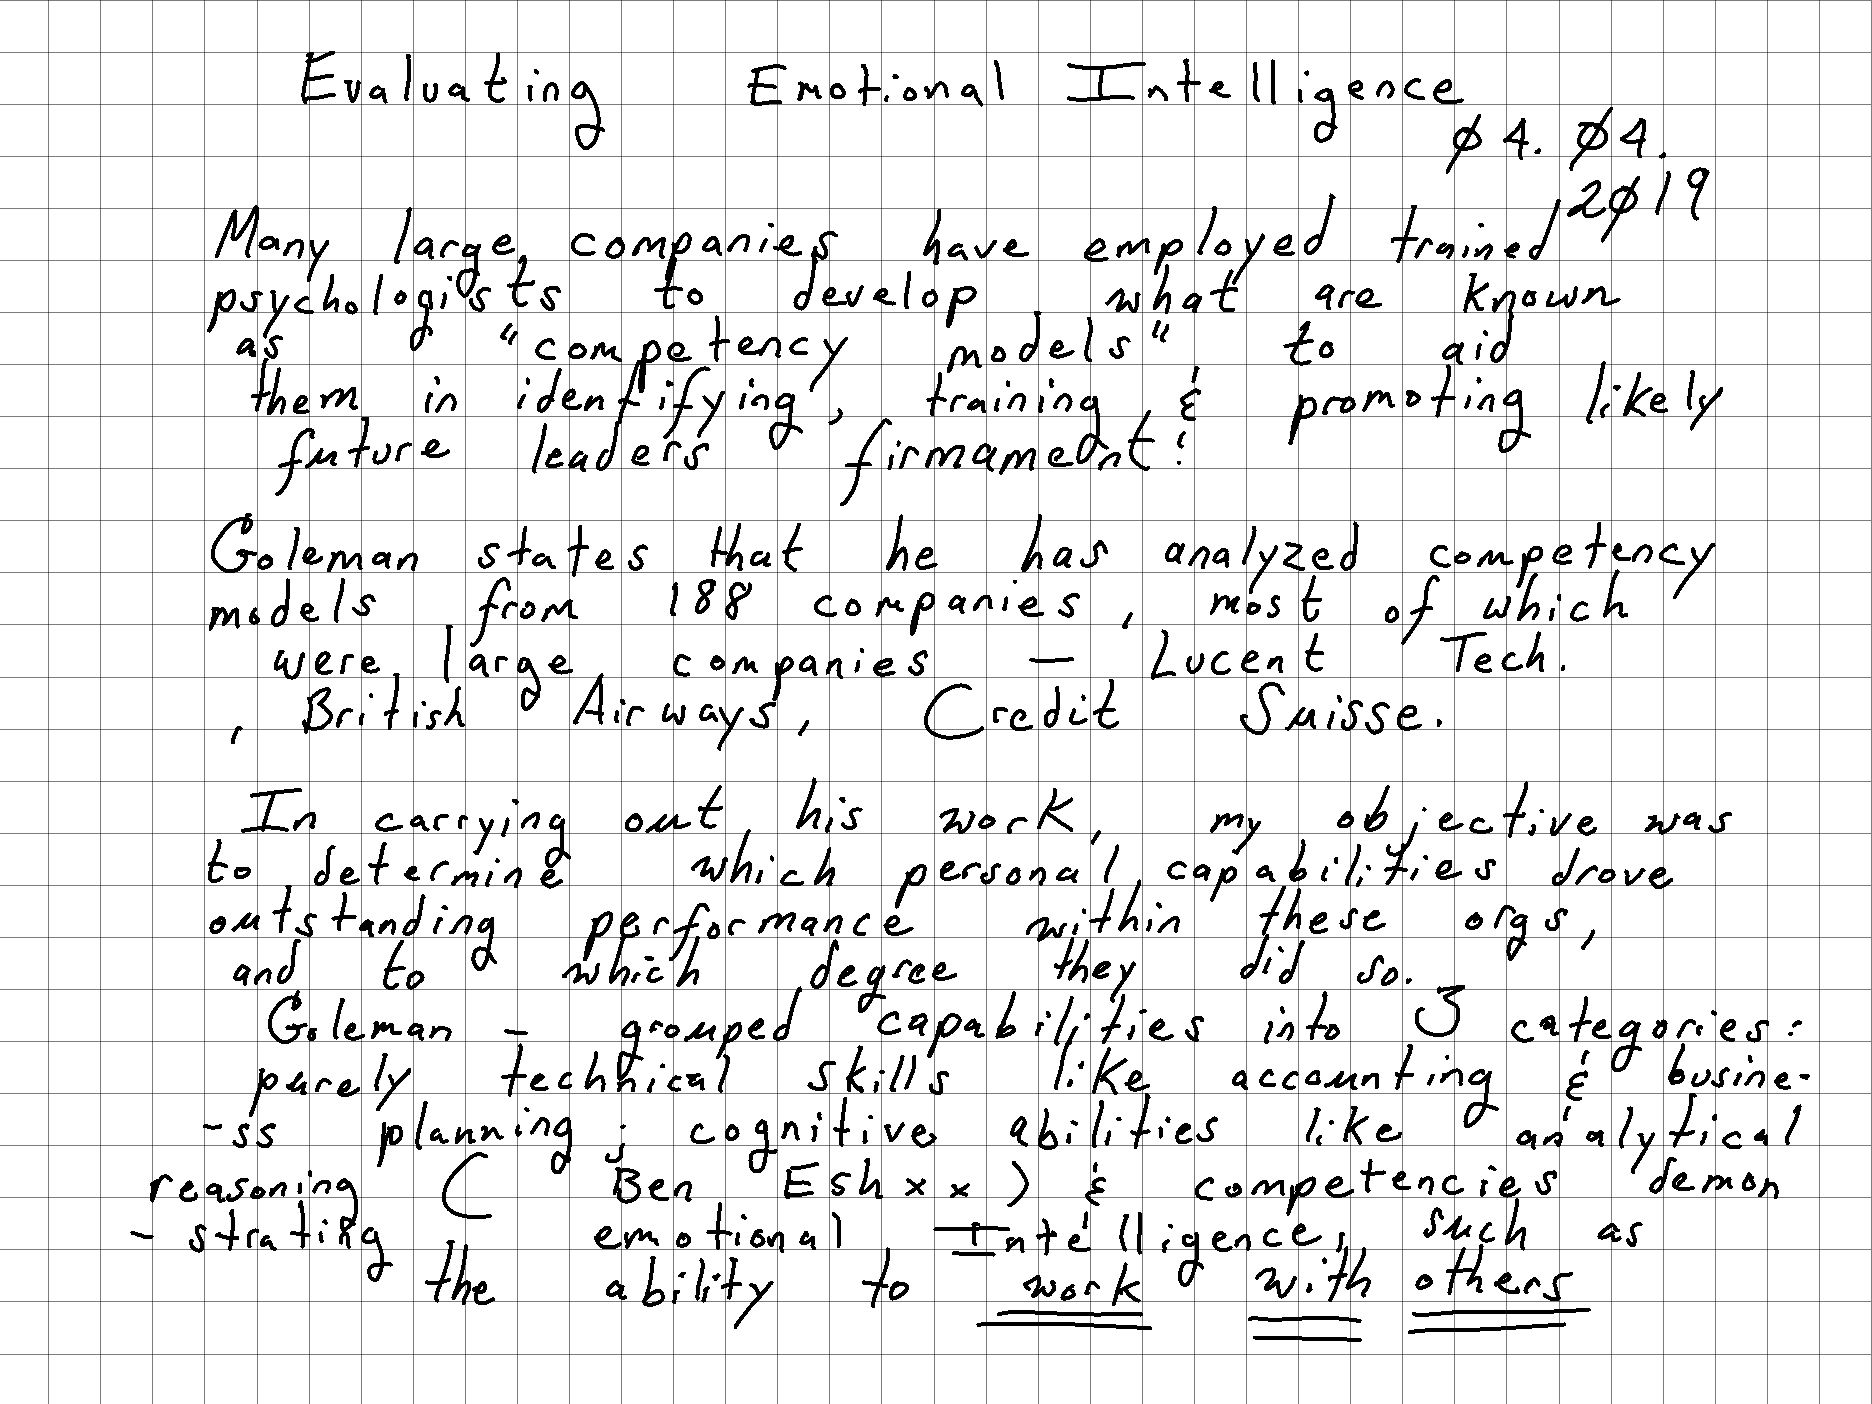 Evaluating Emotional Intelligence
Ø4. Ø4.
2Ø19
Many large companies have employed trained
psychologists to develop what are known
as "competency models" to aid
them in identifying, training, & promoting likely
future leaders firmament!
Goleman states that he has analyzed competency
models from 188 companies, most of which
were large companies — Lucent Tech.
, British Airways, Credit Suisse.
In carrying out his work, my objective was
to determine which personal capabilities drove
outstanding performance within these orgs,
and to which degree they did so.
Goleman - grouped capabilities into 3 categories:
purely technical skills like accounting & busine-
-ss planning; cognitive abilities like analytical
reasoning ( Ben Eshxx) & competencies demon
- strating emotional Intelligence, such as
the ability to work with others